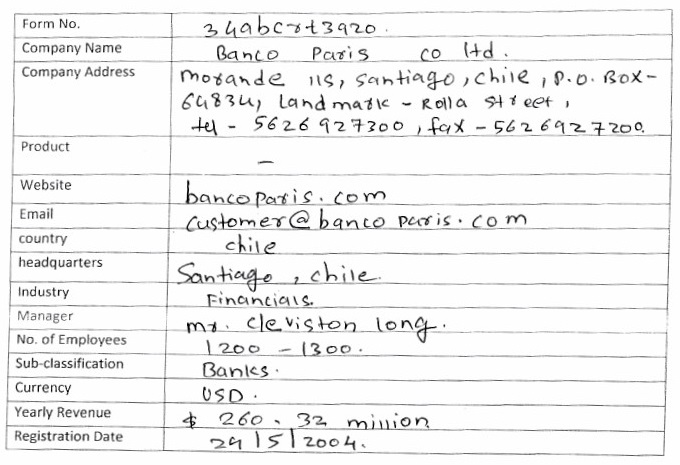 Form No. 34abcrt3920.
Company Name Banco Paris co ltd.
Company Address Morande 115, santiago, chile, P.O. BOX-
64834, landmark - Rolla street,
tel - 5626927300, fax - 5626927200.
Product -
Website bancoparis.com
Email customer@bancoparis.com
country chile
headquarters Santiago, chile.
Industry Financials.
Manager mr. cleviston long.
No. of Employees 1200 - 1300.
Sub-classification Banks.
Currency USD.
Yearly Revenue $ 260.32 million
Registration Date 29/5/2004.